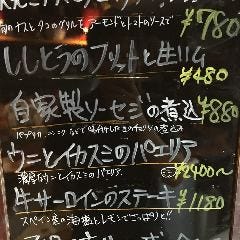 旬のナスとタコのグリル アーモンドとトマトのソースで ¥780
ししとうのフリットと生ハム
¥480
自家製ソーセージの煮込 ¥880
パプリカ、ニンニク などで の煮込み
ウニとイカスミのパエリア
濃厚なウニとイカスミのパエリア。 ¥2400〜
牛サーロインのステーキ ¥1180
スペイン産の海塩とレモンでさっぱりと!!